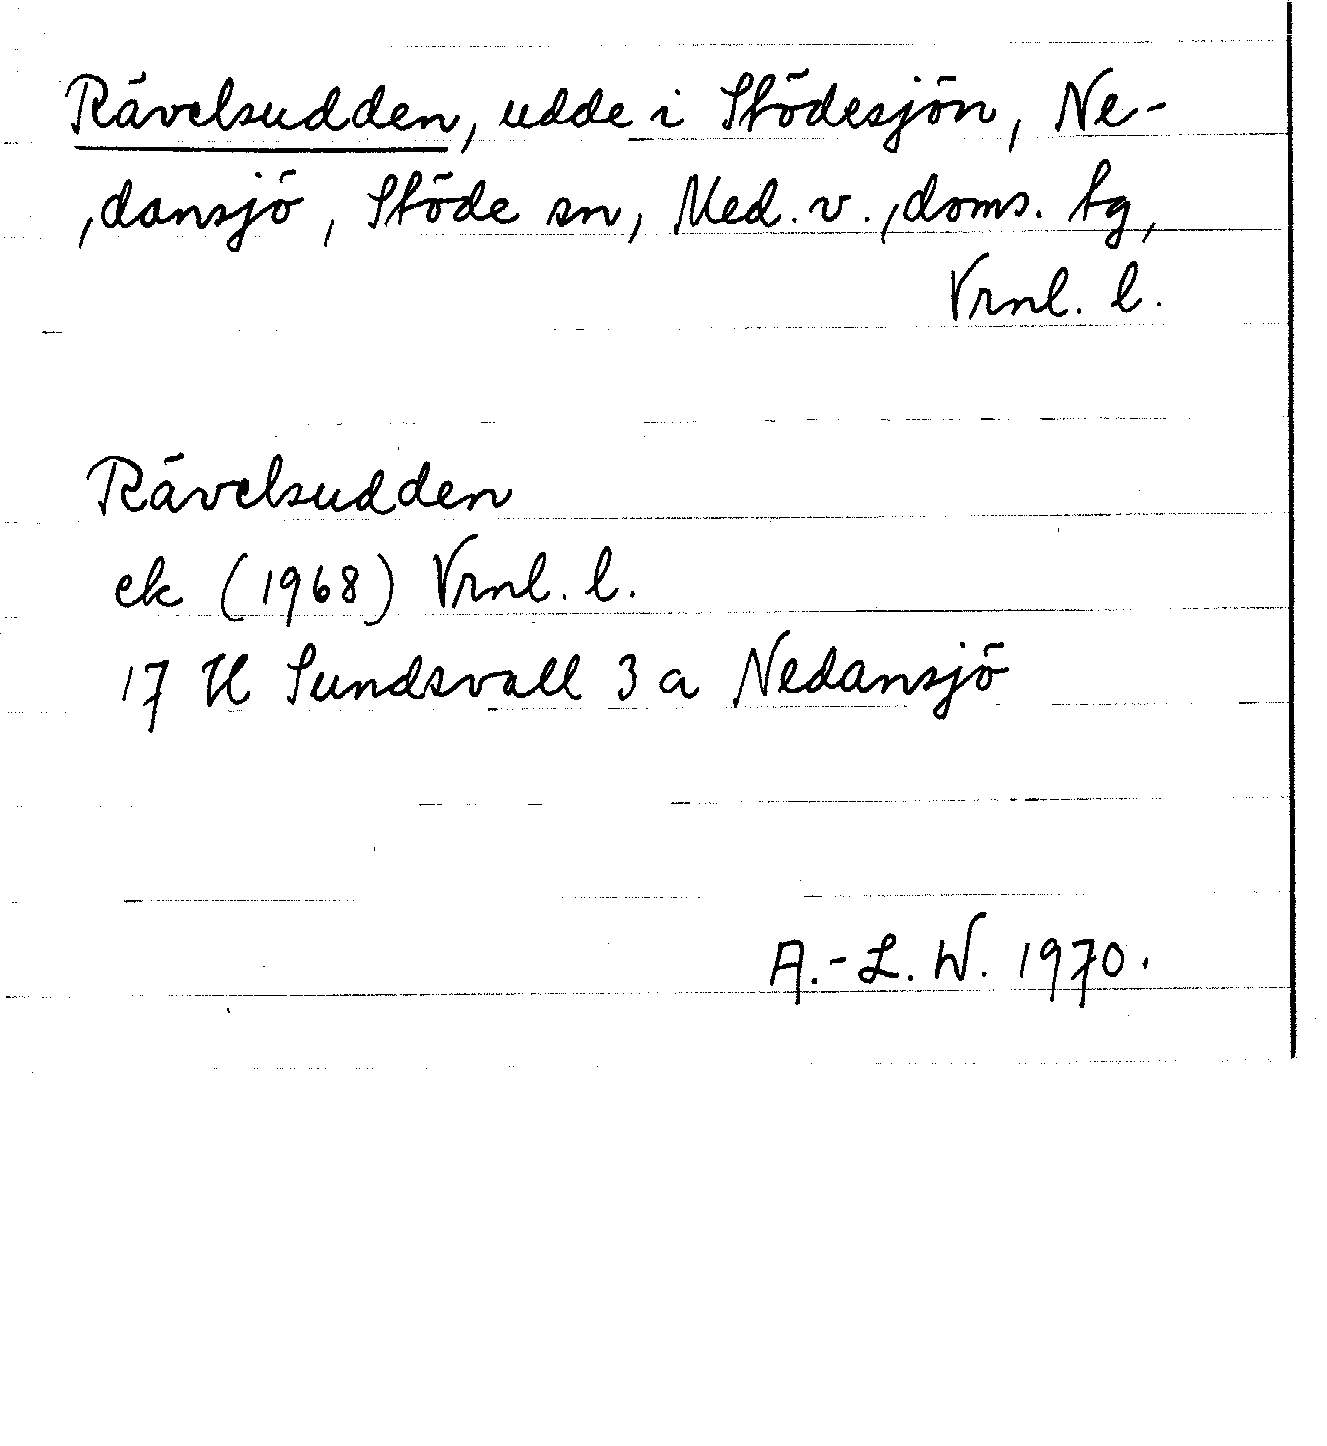 Rävelsudden, udde i Stödesjön, Ne-
dansjö, Stöde sn, Med. v. doms. tg,
Vrnl. l.
Rävelsudden
ek (1968) Vrnl. l.
17 H Sundsvall 3 a Nedansjö
A.-L. W. 1970.